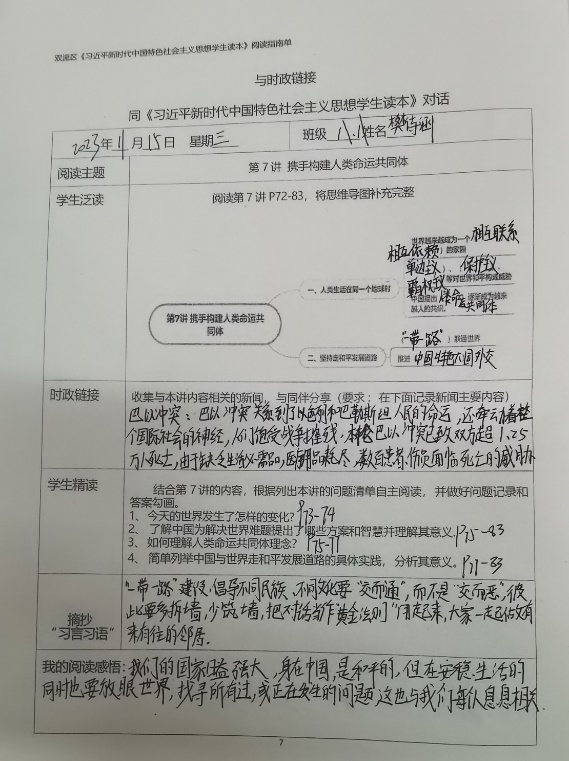 双流区《习近平新时代中国特色社会主义思想学生读本》阅读指南单
与时政链接
同《习近平新时代中国特色社会主义思想学生读本》对话
2023年11月15日 星期三 班级 八.八 姓名 樊诗涵
阅读主题 第 7 讲 携手构建人类命运共同体
学生泛读 阅读第 7 讲 P72-83，将思维导图补充完整
世界越来越成为一个 相互联系
相互依赖 的家园
单边主义、保护主义
霸权主义 等对世界和平构成威胁
一、人类生活在同一个地球村
中国提出 人类命运共同体 逐渐成为越来
越人的共识。
第7讲 携手构建人类命运共
同体
“一带一路” 联通世界
二、坚持走和平发展道路
推进 中国特色大国外交
时政链接 收集与本讲内容相关的新闻，与同伴分享（要求：在下面记录新闻主要内容）
巴以冲突：巴以冲突关系到了以色列和巴勒斯坦人民的命运，还牵动着整
个国际社会的神经，人们饱受战争摧残，本轮巴以冲突已致双方超1.25
万人死亡，由于缺乏生活必需品，医疗用品耗尽，数百患者伤员面临死亡的威胁
学生精读 结合第 7 讲的内容，根据列出本讲的问题清单自主阅读，并做好问题记录和
答案勾画。
1、今天的世界发生了怎样的变化？P73-74
2、了解中国为解决世界难题提出了哪些方案和智慧并理解其意义。P75-83
3、如何理解人类命运共同体理念？P75-77
4、简单列举中国与世界走和平发展道路的具体实践，分析其意义。P77-83
摘抄
“习言习语”
“一带一路”建设，倡导不同民族、不同文化要“交而通”，而不是“交而恶”，彼
此要多拆墙，少筑墙，把对话当作“黄金法则”用起来，大家一起做有
来有往的邻居。
我的阅读感悟：我们的国家日益强大，身在中国，是和平的，但在安稳生活的
同时也要放眼世界，找寻所有过，或正在发生的问题，这也与我们每个人息息相关。
7